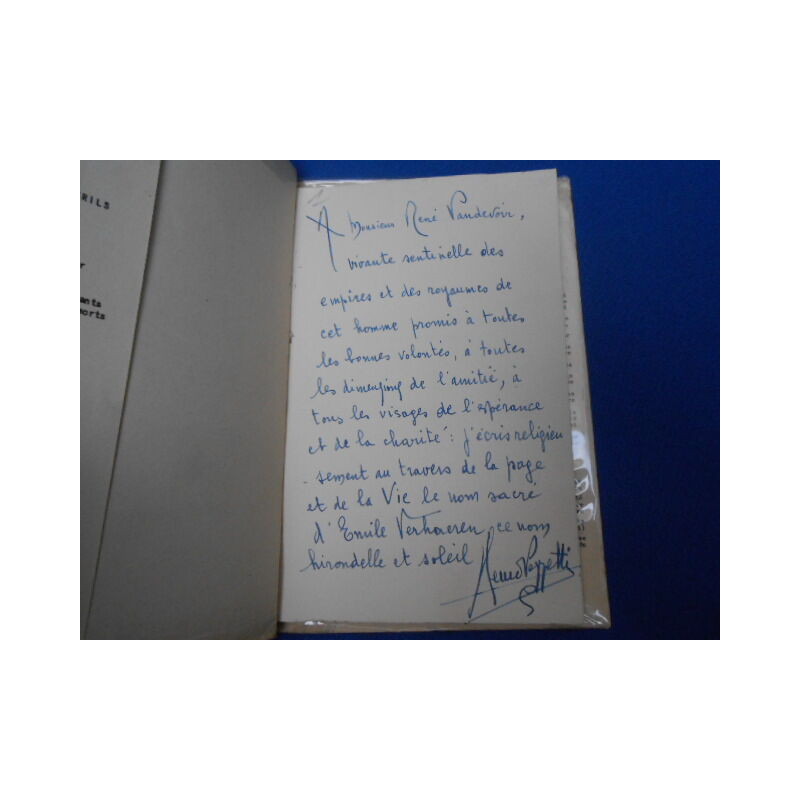 NILS
ants
orts
A Monsieur René Vandevoir,
vivante sentinelle des
empires et des royaumes de
cet homme promis à toutes
les bonnes volontés, à toutes
les dimensions de l'amitié, à
tous les visages de l'espérance
et de la charité : j'écris religieu
-sement au travers de la page
et de la Vie le nom sacré
d'Emile Verhaeren, ce nom
hirondelle et soleil